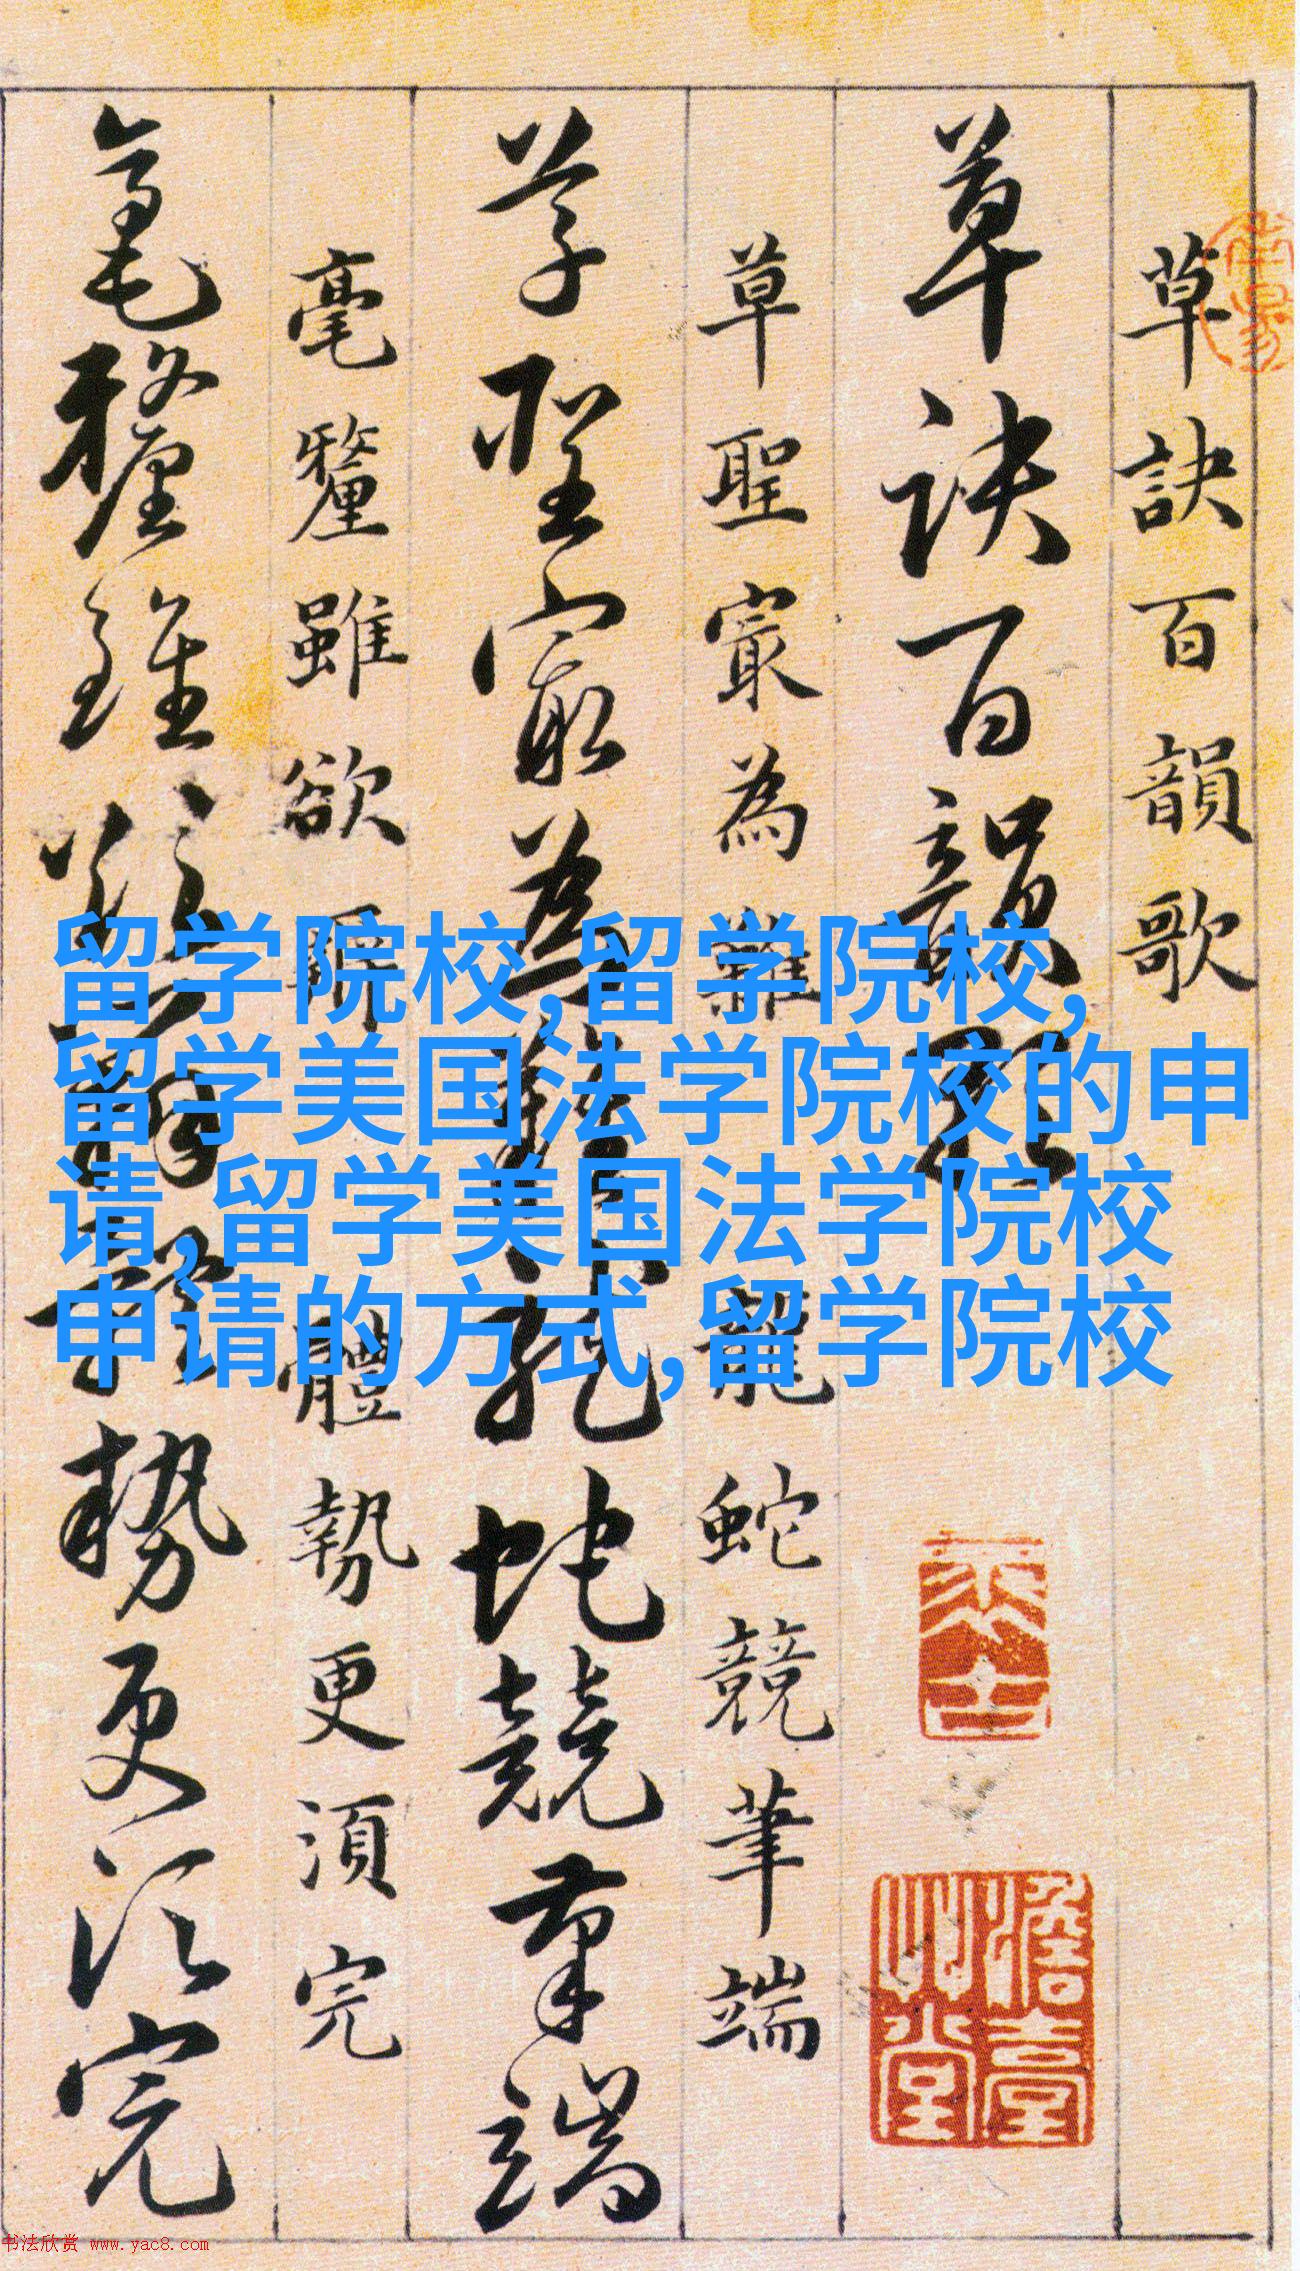 草訣百韻歌
草訣百韻歌
草聖寂為難龍蛇競筆端
草聖寂為難龍蛇競筆端
毫釐雖欲辭體勢更須完
毫釐雖欲辭體勢更須完
留学院校,留学院校,
留学美国法学院校的申
请,留学美国法学院校
申请的方式,留学院校
书法欣赏 www.yac8.com